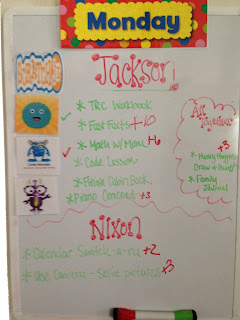 Monday
Jackson
* TRC Workbook
* Fast Facts +10
* Math w/ Mama +6
* Code Lesson
* Finish Cabin Book
* Piano Concert +3
All Together
+3
* Family Journal
Nixon
* Calendar Switch a-roo +2
* Use Camera - Selfie pictures +3